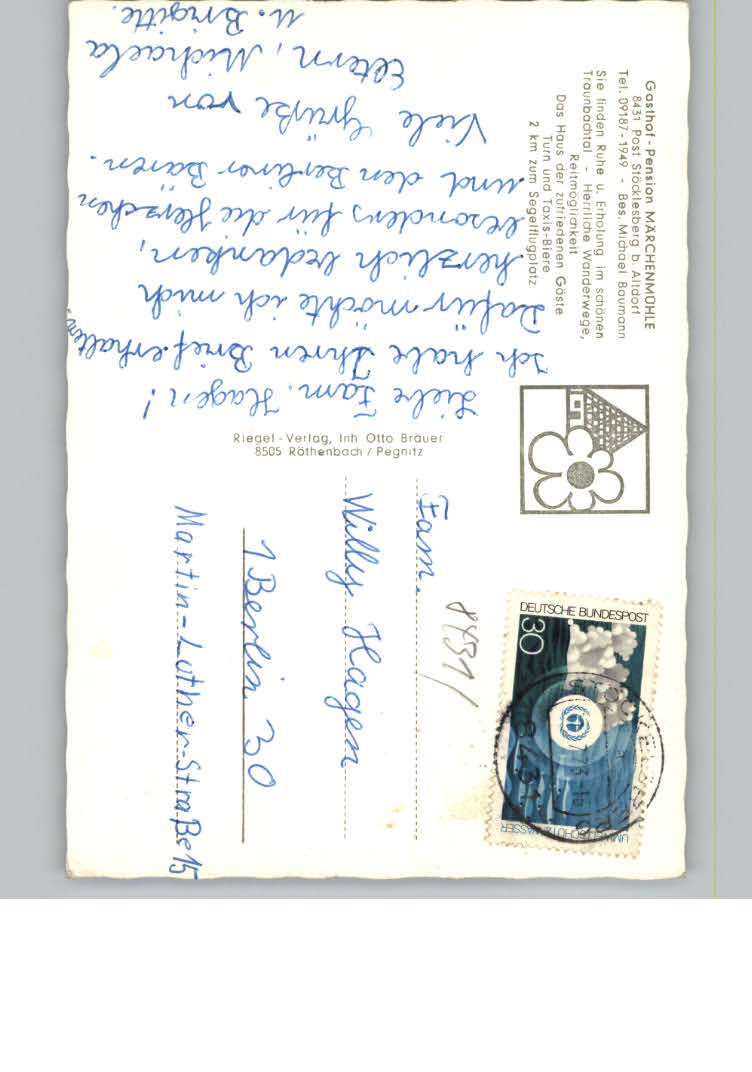 Gasthof - Pension MÄRCHENMÜHLE
8431 Post Stöcklesberg b. Altdorf
Tel. 09187-1949 - Bes. Michael Baumann
Sie finden Ruhe u. Erholung im schönen
Traunbachtal - Herrliche Wanderwege,
Reitmöglichkeit
Das Haus der zufriedenen Gäste
Turn und Taxis-Biere
2 km zum Segelflugplatz
Liebe Fam. Hagen!
Ich habe Ihren Brief erhalten,
Dafür möchte ich mich
herzlich bedanken,
besonders für die Herzchen
und den Berliner Bären.
Viele Grüße von
Eltern, Michaela
u. Brigitte.
Riegel-Verlag, Inh Otto Bräuer
8505 Röthenbach / Pegnitz
DEUTSCHE BUNDESPOST
30
UMWELTSCHUTZ: WASSER
8431
8431/
Fam.
Willy Hagen
1 Berlin 30
Martin-Luther-Straße 15